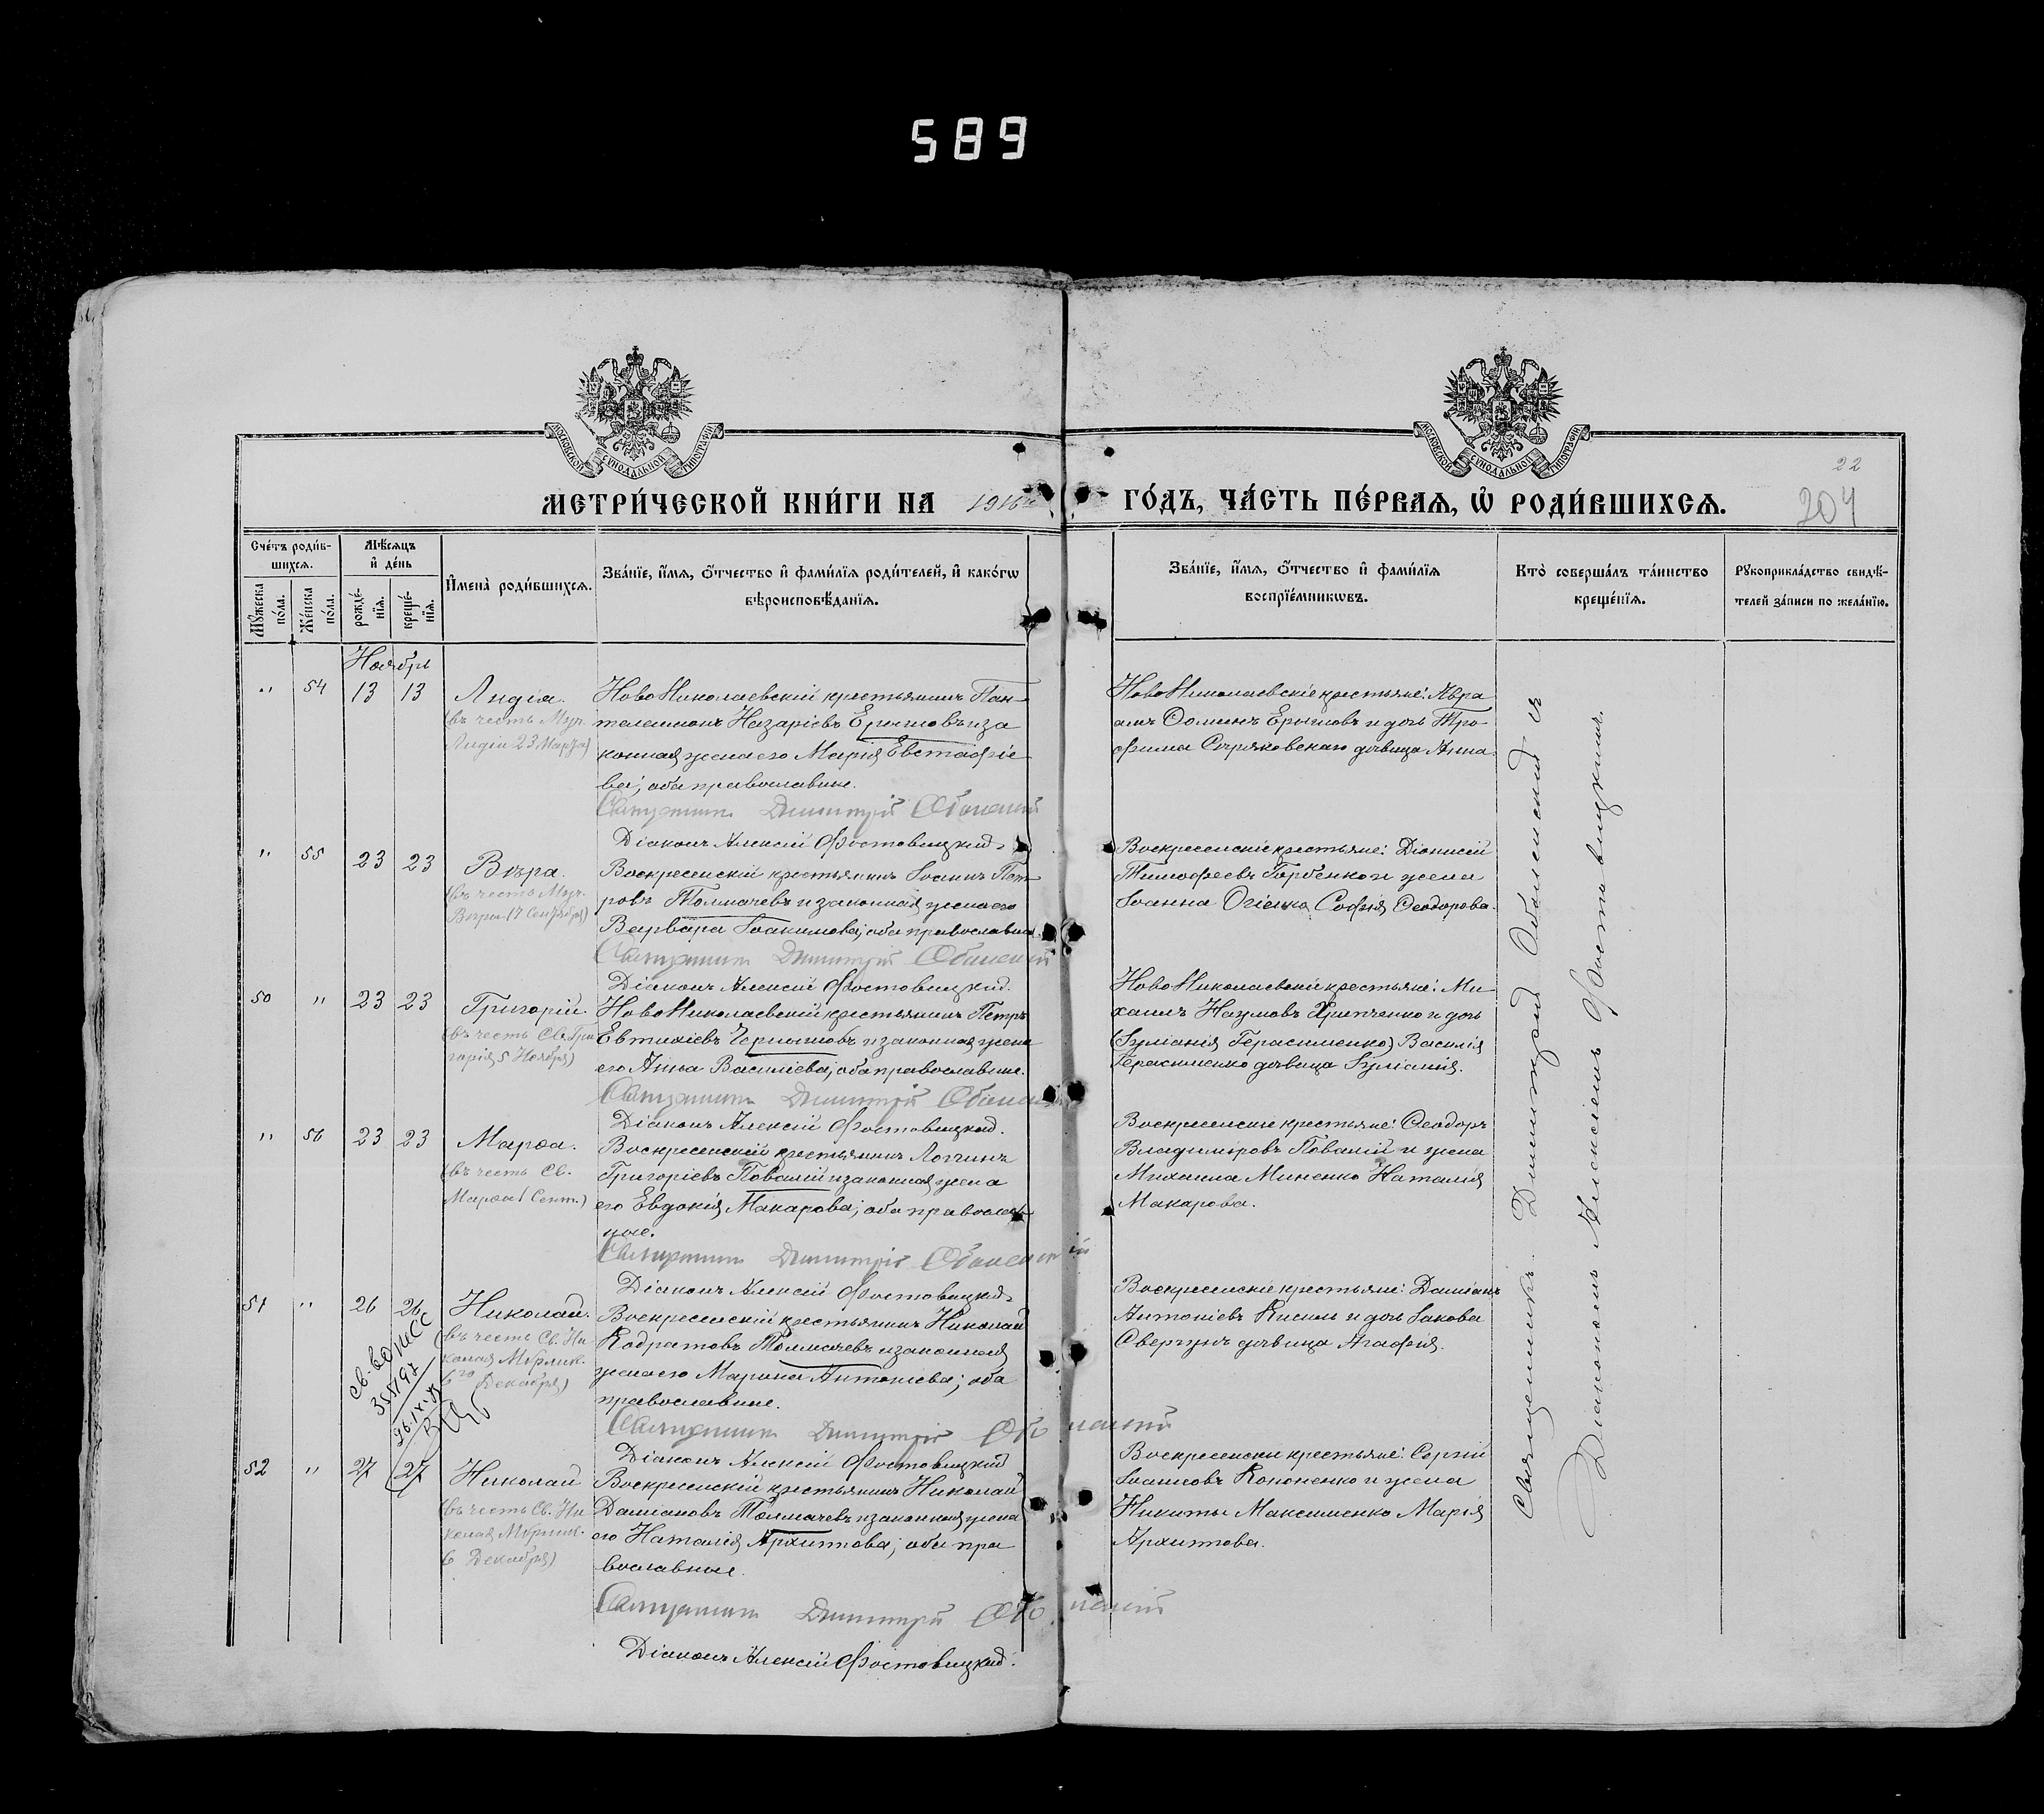 589
МОСКОВСКОЙ СУНОДАЛЬНОЙ ТИПОГРАФІИ
МОСКОВСКОЙ СУНОДАЛЬНОЙ ТИПОГРАФІИ
22
204
МЕТРИ́ЧЕСКОЙ КНИ́ГИ НА 1916й ГО́ДЪ, ЧА́СТЬ ПЕ́РВАѦ, Ѡ҆ РОДИ́ВШИХСѦ.
Сче́тъ роди́в-
шихсѧ.
Мꙋ́жеска по́ла.
Же́нска по́ла.
Мѣ́сѧцъ и҆ де́нь
рожде́-нїѧ.
креще́-нїѧ.
И҆мена̀ роди́вшихсѧ.
Зва́нїе, и҆́мѧ, ѻ҆́тчество и҆ фами́лїѧ роди́телей, и҆ како́гѡ
вѣроисповѣ́данїѧ.
Зва́нїе, и҆́мѧ, ѻ҆́тчество и҆ фами́лїѧ
воспрїе́мникѡвъ.
Кто̀ соверша́лъ та́инство
креще́нїѧ.
Рꙋкоприкла́дство свидѣ́-
телей за́писи по жела́нїю.
Ноябрь
" 54 13 13
Лидія.
(въ честь Муч.
Лидіи 23 Марта)
НовоНиколаевскій крестьянинъ Пан-
телеимонъ Назаріевъ Ерыговъ и за
конная жена его Марія Евстафіе
ва; оба православные.
Священникъ Димитрій Оболенскій
Діаконъ Алексій Фостовицкій.
НовоНиколаевскіе крестьяне: Авра
амъ Ерыговъ и дочь Тро-
фима дѣвица Анна.
" 55 23 23
Вѣра.
(въ честь Муч.
Вѣры 17 Сентября)
Воскресенскій крестьянинъ Іоаннъ Пет-
ровъ Толмачевъ и законная жена его
Варвара Іоакимова; оба православные.
Священникъ Димитрій Оболенскій
Діаконъ Алексій Фостовицкій.
Воскресенскіе крестьяне: Діонисій
Тимофеевъ Горбенко и жена
Іоанна Огіенко Софія Ѳеодорова.
50 " 23 23
Григорій.
(въ честь Св. Гри
горія 5 Ноября)
НовоНиколаевскій крестьянинъ Петръ
Евтихіевъ и законная жена
его Анна Василіева; оба православные.
Священникъ Димитрій Оболенскій
Діаконъ Алексій Фостовицкій.
НовоНиколаевскіе крестьяне: Ми-
хаилъ Наумовъ Хрипченко и дочь
(Іуліанія Герасименко) Василія
Герасименко дѣвица Іуліанія.
" 56 23 23
Марѳа.
(въ честь Св.
Марѳы 1 Сент.)
Воскресенскій крестьянинъ Логгинъ
Григоріевъ Пованій и законная жена
его Евдокія Макарова; оба православ
ные.
Священникъ Димитрій Оболенскій
Діаконъ Алексій Фостовицкій.
Воскресенскіе крестьяне: Ѳеодоръ
Владиміровъ Пованій и жена
Михаила Миненко Наталія
Макарова.
51 " 26 26
Николай.
(въ честь Св. Ни
колая Мѵрлик.
6го Декабря)
Воскресенскій крестьянинъ Николай
Кодратовъ Толмачевъ и законная
жена его Марина Антоніева; оба
православные.
Священникъ Димитрій Оболенскій
Діаконъ Алексій Фостовицкій
Воскресенскіе крестьяне: Даміанъ
Антоніевъ Кисиль и дочь Іакова
Свергунъ дѣвица Агафія.
52 " 27 27
Николай
(въ честь Св. Ни
колая Мѵрлик.
6 Декабря)
Воскресенскій крестьянинъ Николай
Даміановъ Толмачевъ и законная жена
его Наталія Архиппова; оба пра
вославные.
Священникъ Димитрій Оболенскій
Діаконъ Алексій Фостовицкій.
Воскресенскіе крестьяне: Сергій
Іоанновъ Кононенко и жена
Никиты Максименко Марія
Архиппова.
Священникъ Димитрій Оболенскій съ
Діакономъ Алексіемъ Фостовицкимъ.